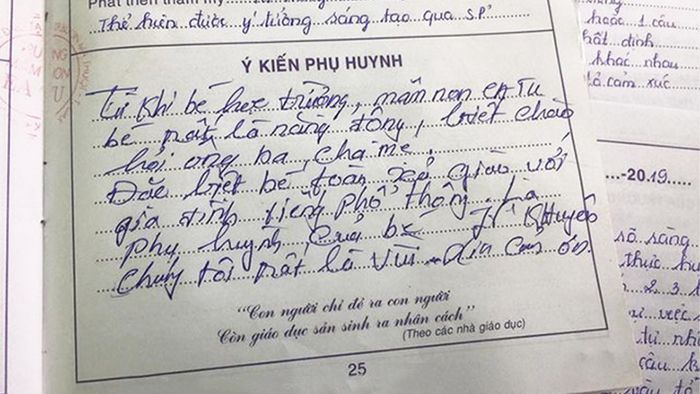 Phát triển thẩm mỹ
Thể hiện được ý tưởng sáng tạo qua S.P
Ý KIẾN PHỤ HUYNH
Từ khi bé học trường mầm non
bé rất là năng động, biết chào
hỏi ông bà, cha mẹ,
Đặc biệt bé toàn giao với
gia đình tiếng phổ thông. Là
phụ huynh của bé Khuyên
Chúng tôi rất là vui. xin cảm ơn.
"Con người chỉ đẻ ra con người
Còn giáo dục sản sinh ra nhân cách"
(Theo các nhà giáo dục)
25
hoặc 1 câu
nhất định
khác nhau
tả cảm xúc
-2019
sẵn sàng
thực hu
2 3
việc
tự nh
câu